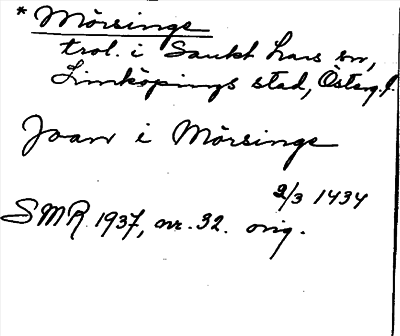 * Mörsinge
trol. i Sankt Lars sn,
Linköpings stad, Österg.l.
Joan i Mörsinge
2/3 1434
SMR 1937, nr. 32. orig.